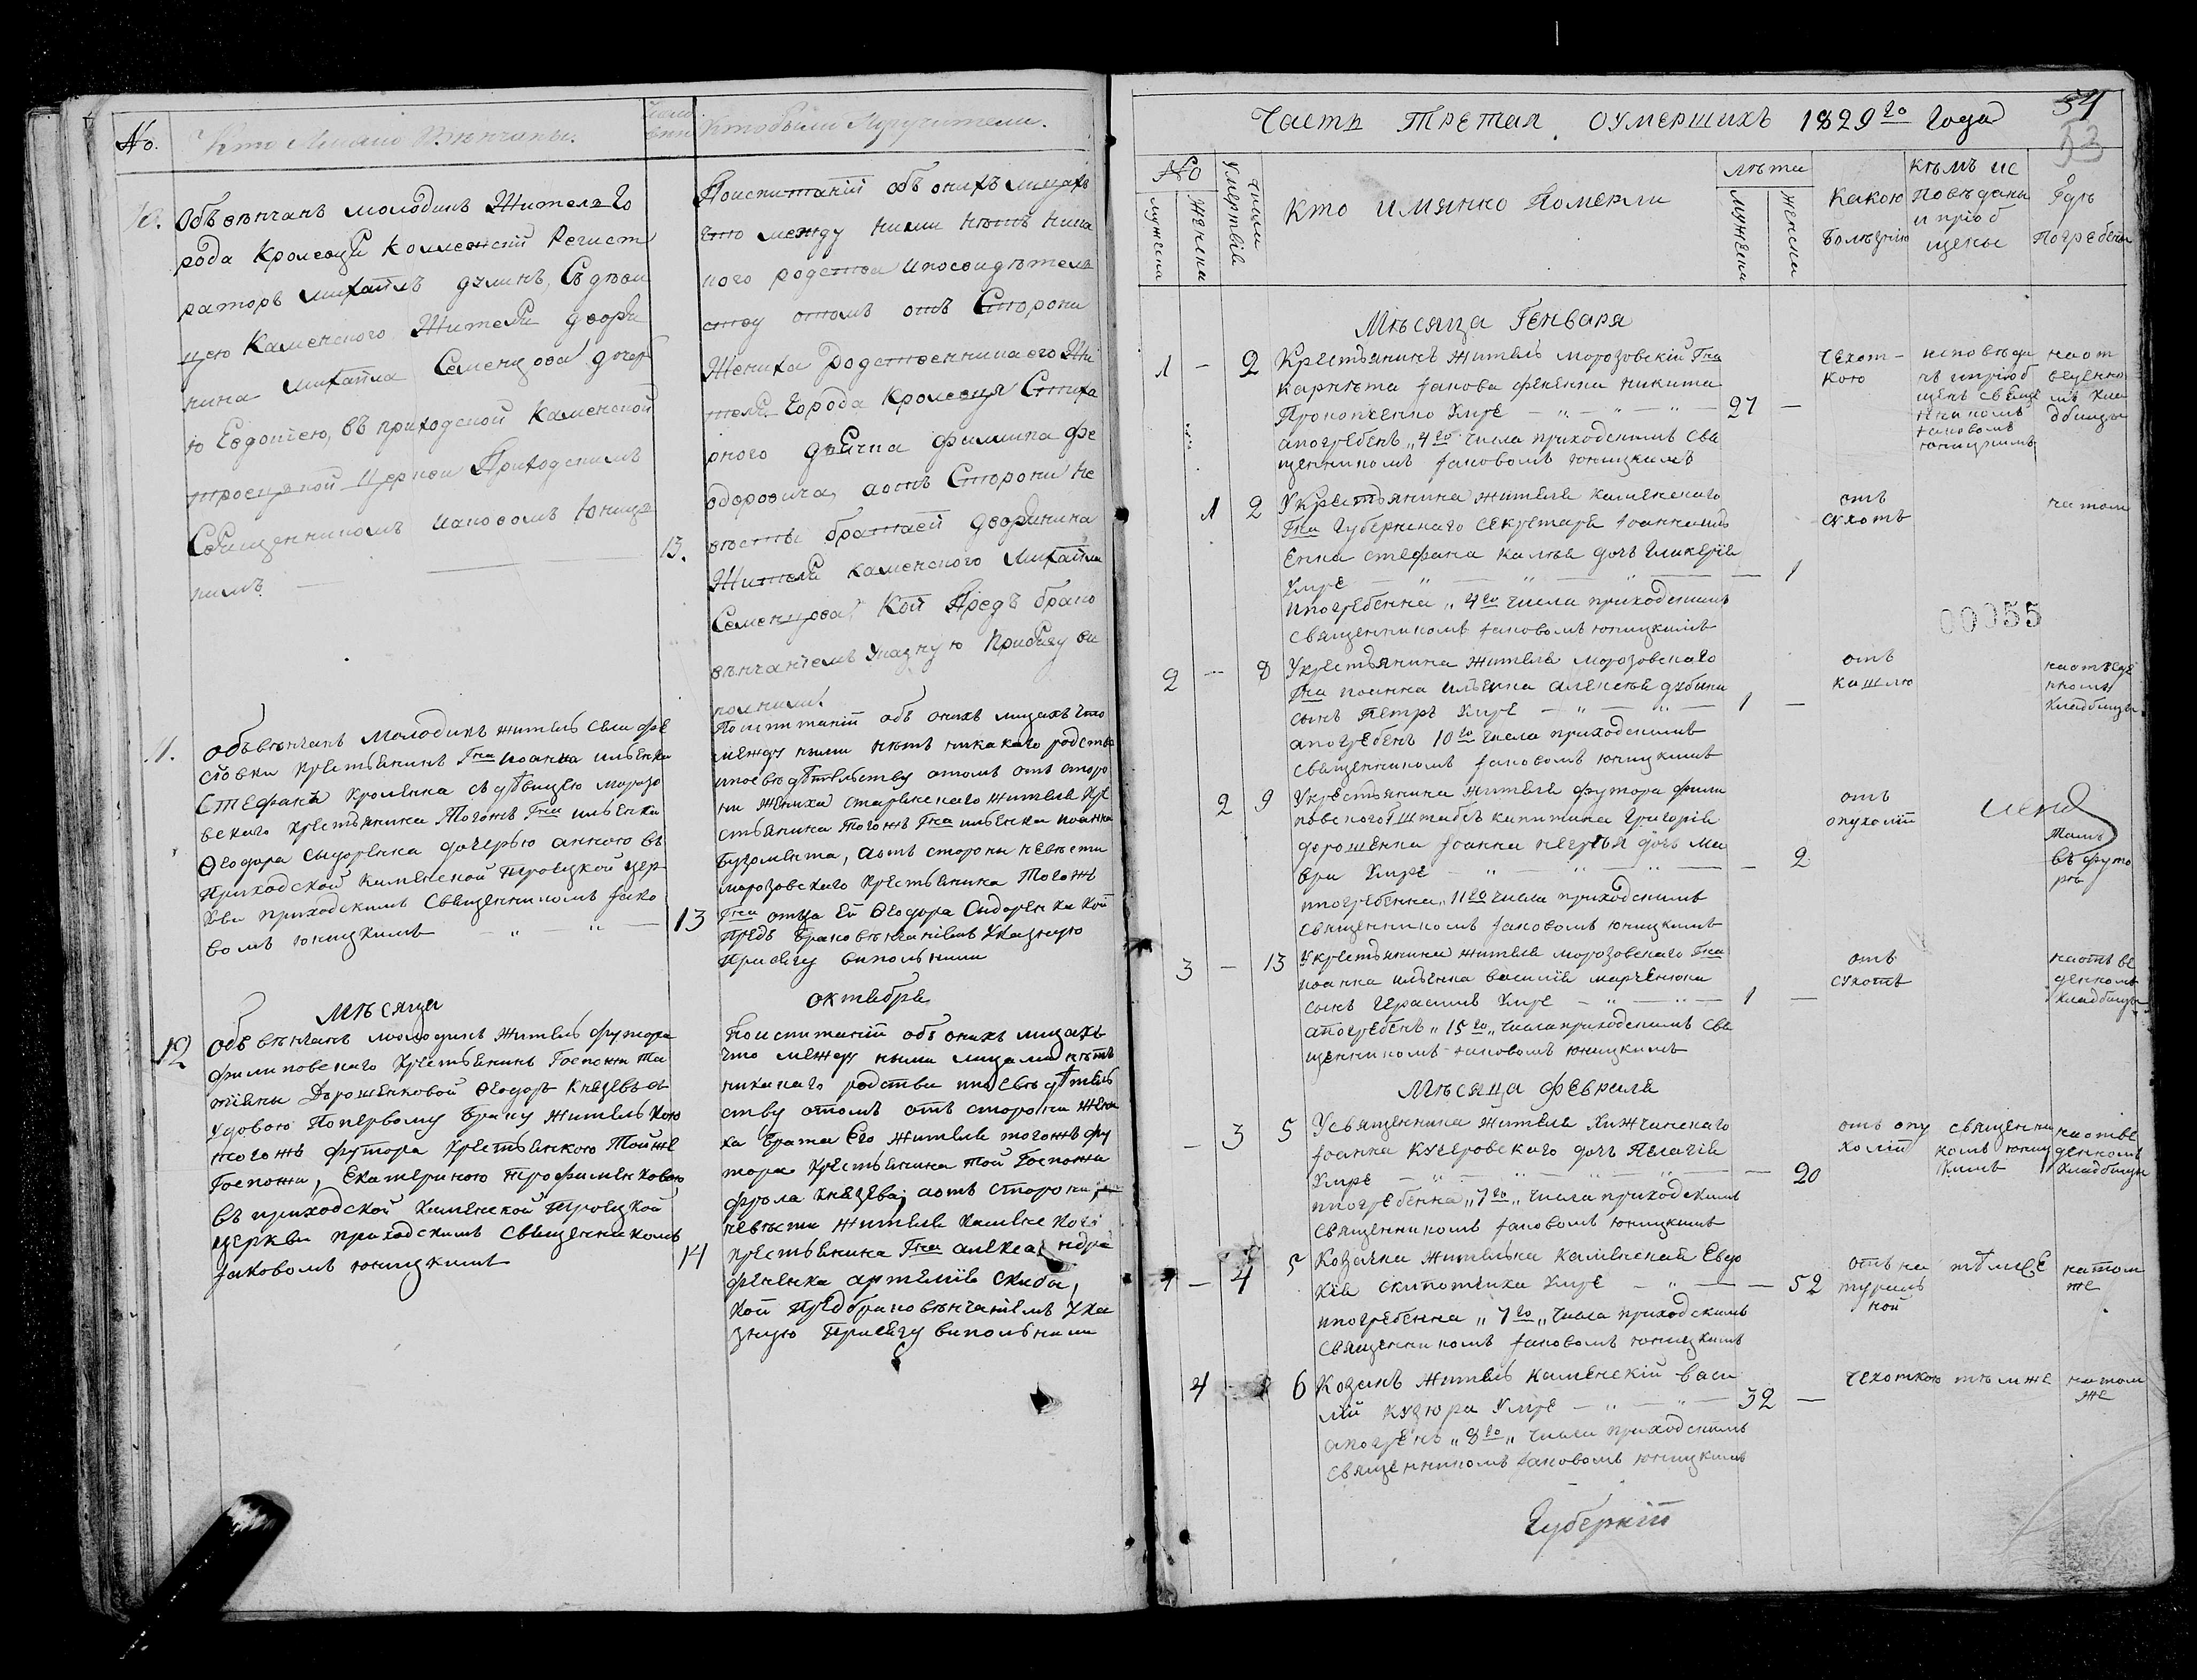 No.
Кто Имяно Венчаны.
Кто были Поручители.
10.
Объвѣнчанъ молодикъ Житель го
рода Кролевця Коллежскій Регист
раторъ Михаилъ
Съ дѣви
цею Каменского Жителя дворя
нина Михаила Семенцова дочер
ю Евдокіею, въ приходской Каменской
троецкой церкви Приходскимъ
Священникомъ Иаковомъ Юниц
кимъ
13.
Поиспитаніи объ онихъ лицахъ
что между ними нѣтъ ника
кого родства ипосвидѣтель
ству отомъ отъ Сторони
Жениха Родственника его Жи
теля Города Кролевця
Филиппа Фе
одоровича, аотъ Сторони не
вѣсты дворянина
Жителя каменского Михаила
Семенцова, Кой Предъ брако
вѣнчаніемъ Указную Присягу ви
полнили.
11.
Объвѣнчанъ Молодикъ житель села
крестьянинъ Гна Иоанна ильенка
Стефанъ Кроленка съ дѣвицею морозо
вского крестьянина Тогожъ Гна ильенка
Ѳеодора Сыдоренка дочерью анною въ
Приходской Каменской Троецкой цер
кви приходскимъ Священникомъ Јако
вомъ Юницкимъ
13
Поиспитаніи объ онихъ лицахъ что
между ними нѣтъ никакаго родства
отомъ отъ сторо
ни жениха житель кре
стьянина Тогожъ Гна ильенка иоанна
аотъ стороны невѣсти
морозовскаго крестьянина Тогожъ
Гна отца Ей Ѳеодора Сидоренка кой
предъ браковѣнчаніемъ Указную
Присягу виполнили
Мѣсяца октября
12
Объвѣнчанъ молодикъ житель футора
филиповскаго крестьянинъ Госпожи Та
тіяны Дорошенковой Ѳеодоръ Князевъ съ
удовою Попервому браку жителькою
тогожъ футора крестьянкою Тойже
Госпожи, Екатериною Трофименковою
въ приходской Каменской Троецкой
церкви приходскимъ Священникомъ
Јаковомъ Юницкимъ
14
Поиспитаніи объ онихъ лицахъ
что между ними лицами нѣтъ
никакаго родства
ству отомъ отъ сторони жени
ха брата Его жителя тогожъ фу
тора крестьянина той Госпожи
фрола князева, аотъ сторони
невѣсти жителя
крестьянина Гна александра
фененка артемія Скиба,
кой предъбраковѣнчаніемъ Ука
зную Присягу виполнили
Часть Третая оумершихъ 1829го Года
54
53
No
мужеска
женска
Числа
Умертвія
Кто имянно Померли
лѣта
мужески
женски
Какою
Болѣзнію
кѣмъ ис
повѣданы
и пріоб
щены
Гдѣ
Погребены
Мѣсяца Генваря
1 — 2
Крестьянинъ житель морозовскій Гна
Карнѣта Јакова фененка никита
Прокопченко Умре 27 —
апогребенъ „4го числа приходскимъ Свя
щенникомъ Јаковомъ Юницкимъ
Чехот-
кою
исповѣда
нъ ипріоб
щенъ свяще
нникомъ
Іаковомъ
Юницкимъ
наот
веденно
мъ кла
дбищѣ
1 2
Укрестьянина жителя каменского
Гна Губернскаго Секретаря Іоанна
Стефана дочъ Гликерія
Умре — 1
ипогребенна „4го числа приходскимъ
священникомъ Јаковомъ Юницкимъ
отъ
Сухотъ
натом
00055
2 — 8
Укрестьянина жителя морозовского
Гна иоанна ильенка алексѣя дубины
сынъ Петръ Умре 1 —
апогребенъ 10го числа приходскимъ
священникомъ Јаковомъ Юницкимъ
отъ
кашлю
наотведе
нномъ
кладбищѣ
2 9
Укрестьянина жителя футора фили
повского штабсъ капитана Григорія
дорошенка Іоанна дочъ Ма
вра Умре — 2
ипогребенна „11го числа приходскимъ
священникомъ Јаковомъ Юницкимъ
отъ
опухоліи
тамъ
въ футо
рѣ
3 — 13
Укрестьянина жителя морозовскаго Гна
иоанна ильенка василія марченюка
сынъ Герасимъ Умре 1 —
апогребенъ „15го„ числа приходскимъ Свя
щенникомъ Іаковомъ Юницкимъ
отъ
сухотъ
наотве
денномъ
кладбищѣ
Мѣсяца февраля
— 3 5
Усвященника жителя
Јоанна Кучеровского дочъ Пелагія
Умре — 20
ипогребенна „7го„ числа приходскимъ
священникомъ Јаковомъ Юницкимъ
отъ опу
холіи
священни
комъ Юниц
кимъ
наотве
денномъ
кладбищѣ
— 4 5
Козачка жителька каменская Евдо
кія Умре — 52
ипогребенна „7го„ числа приходскимъ
священникомъ Јаковомъ Юницкимъ
отъ на
тураль
ной
тѣмже
натом
же
4 — 6
Козакъ житель каменскій васи
лій кузюра Умре 32 —
апогренъ „8го„ числа приходскимъ
священникомъ Јаковомъ Юницкимъ
Чехоткою
тѣмже
натом
же
Губерніи